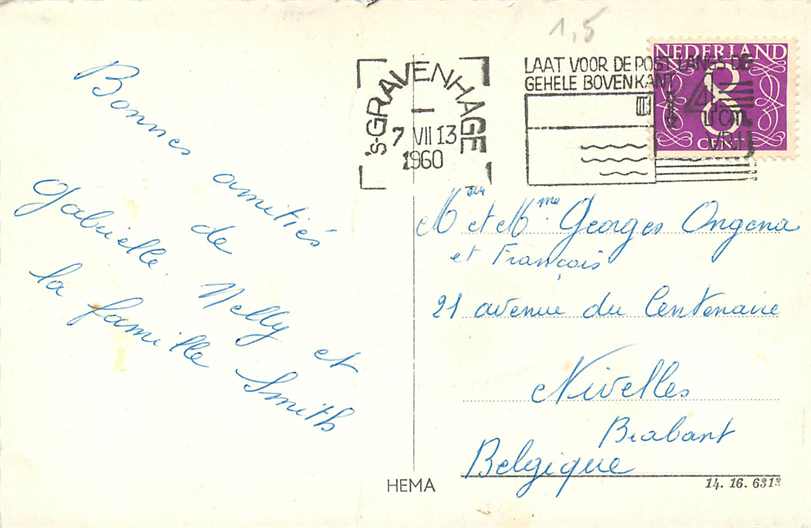 Bonnes amitiés
de
Gabrielle, Nelly et
la famille Smith
1,5
's-GRAVENHAGE
7 VII 13
1960
LAAT VOOR DE POST LANGS DE
GEHELE BOVENKANT
4
NEDERLAND
8
CENT
M et Mme Georges Ongena
et François
21 avenue du Centenaire
Nivelles
Brabant
Belgique
HEMA
14. 16. 6313